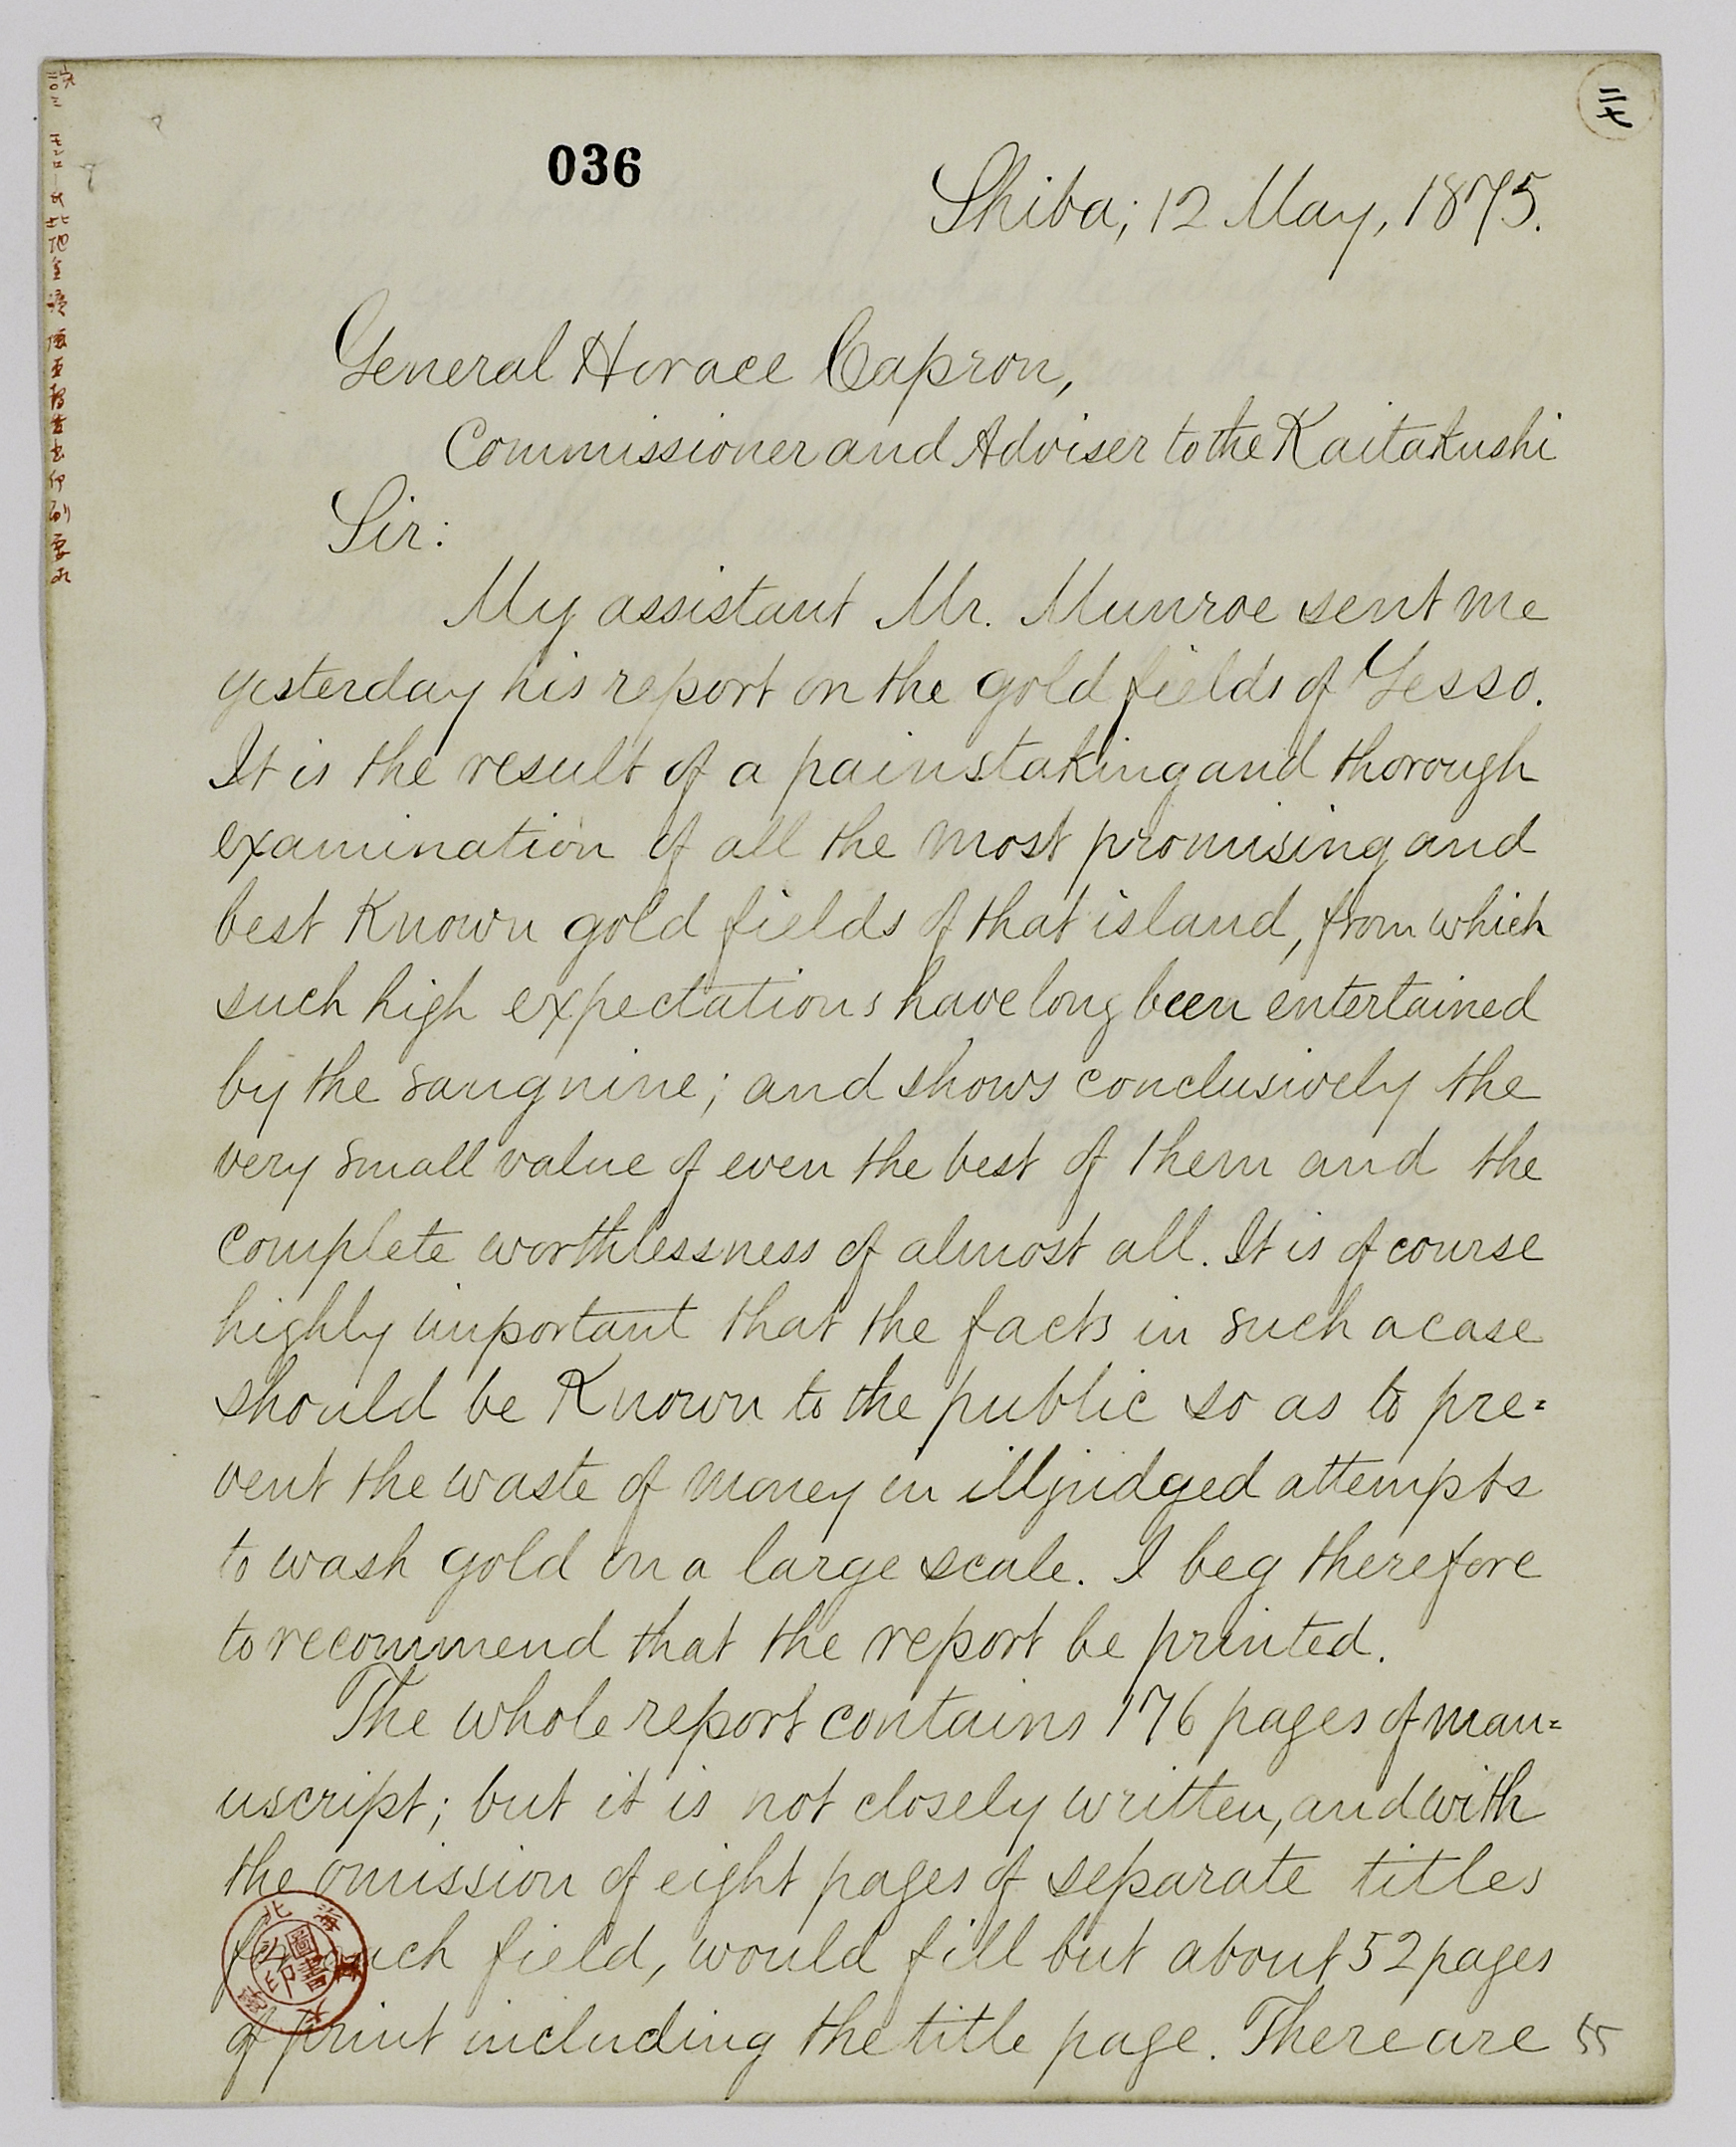 036
二七
Shiba; 12 May, 1875.
General Horace Capron,
Commissioner and Adviser to the Kaitakushi
Sir:
My assistant Mr. Munroe sent me
yesterday his report on the gold fields of Yesso.
It is the result of a painstaking and thorough
examination of all the most promising and
best known gold fields of that island, from which
such high expectations have long been entertained
by the sanguine; and shows conclusively the
very small value of even the best of them and the
complete worthlessness of almost all. It is of course
highly important that the facts in such a case
should be known to the public so as to pre=
vent the waste of money in illjudged attempts
to wash gold on a large scale. I beg therefore
to recommend that the report be printed.
The whole report contains 176 pages of man=
uscript; but it is not closely written, and with
the omission of eight pages of separate titles
for each field, would fill but about 52 pages
of print including the title page. There are
55